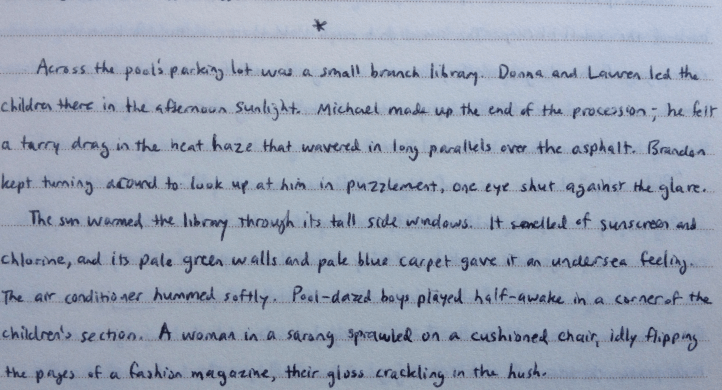 *
Across the pool's parking lot was a small branch library. Donna and Lauren led the
children there in the afternoon sunlight. Michael made up the end of the procession; he felt
a tarry drag in the heat haze that wavered in long parallels over the asphalt. Brandon
kept turning around to look up at him in puzzlement, one eye shut against the glare.
The sun warmed the library through its tall side windows. It smelled of sunscreen and
chlorine, and its pale green walls and pale blue carpet gave it an undersea feeling.
The air conditioner hummed softly. Pool-dazed boys played half-awake in a corner of the
children's section. A woman in a sarong sprawled on a cushioned chair, idly flipping
the pages of a fashion magazine, their gloss crackling in the hush.